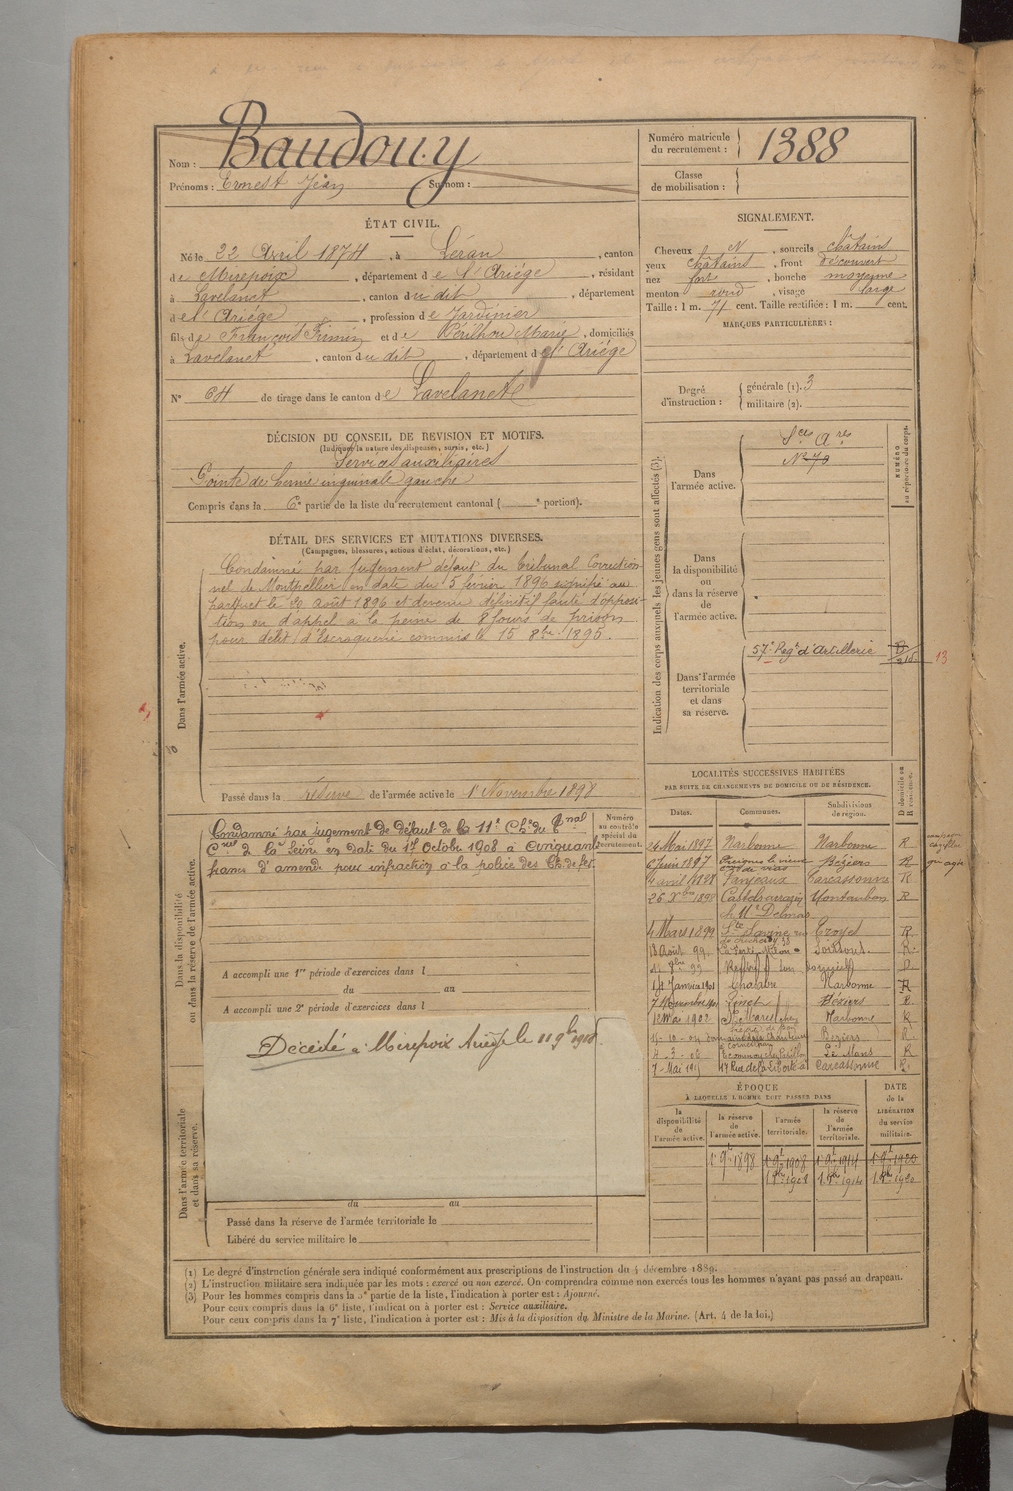 Nom : Baudouy
Prénoms : Ernest Jean Surnom :
Numéro matricule du recrutement : 1388
Classe de mobilisation :
ÉTAT CIVIL.
Né le 22 Avril 1874, à Léran, canton
de Mirepoix, département de l'Ariége, résidant
à Lavelanet, canton du dit, département
de l'Ariége, profession de Jardinier
fils de François Firmin et de Périlhou Marie, domiciliés
à Lavelanet, canton du dit, département de l'Ariége
N° 64 de tirage dans le canton de Lavelanet
SIGNALEMENT.
Cheveux N, sourcils châtains
yeux châtains, front découvert
nez fort, bouche moyenne
menton rond, visage large
Taille : 1 m. 71 cent. Taille rectifiée : 1 m. cent.
MARQUES PARTICULIÈRES :
Degré d'instruction : générale (1). 3
militaire (2).
DÉCISION DU CONSEIL DE REVISION ET MOTIFS.
(Indiquer la nature des dispenses, sursis, etc.)
Services auxiliaires
Pointe de hernie inguinale gauche
Compris dans la 6e partie de la liste du recrutement cantonal ( e portion).
DÉTAIL DES SERVICES ET MUTATIONS DIVERSES.
(Campagnes, blessures, actions d'éclat, décorations, etc.)
Dans l'armée active.
Condamné par jugement défaut du tribunal Correction
nel de Montpellier en date du 5 février 1896 signifié au
parquet le 20 Août 1896 et devenu définitif faute d'opposi-
tion ou d'appel à la peine de 8 jours de prison
pour délit d'Escroquerie commis le 15 8bre 1895.
Passé dans la réserve de l'armée active le 1r Novembre 1898
Indication des corps auxquels les jeunes gens sont affectés (3).
NUMÉRO au répertoire du corps.
Dans l'armée active.
Sces Ares
Dans la disponibilité ou dans la réserve de l'armée active.
Dans l'armée territoriale et dans sa réserve.
57e Regt d'Artillerie
13
Dans la disponibilité ou dans la réserve de l'armée active.
Numéro au contrôle spécial du recrutement.
Condamné par jugement de défaut de la 11e Chre du Tnal
Cnel de la Seine en date du 17 Octobre 1908 à cinquante
francs d'amende pour infraction à la police des Ch. de fer.
A accompli une 1re période d'exercices dans l
du au
A accompli une 2e période d'exercices dans l
Décédé à Mirepoix Ariège le 11 9bre 1918.
Dans l'armée territoriale et dans sa réserve.
du au
Passé dans la réserve de l'armée territoriale le
Libéré du service militaire le
LOCALITÉS SUCCESSIVES HABITÉES
PAR SUITE DE CHANGEMENTS DE DOMICILE OU DE RÉSIDENCE.
Dates. Communes. Subdivisions de région. D domicile ou R résidence.
26 Mai 1897 Narbonne Narbonne R
6 Juin 1897 Béziers R
4 avril 1898 Fanjeaux Carcassonne R
26 Xbre 1898 Castelsarrasin Montauban R
ch. Mr Delmas
4 Mars 1899 Ste Savine Troyes R
13 Août 99 La Ferté-Milon Soissons R.
14 Janvier 1901 Chalabre Narbonne R
7 1901 Béziers R.
12 Mai 1902 Narbonne R
Béziers R.
4 - 3 - 06 Le Mans R
7 - Mai 191 47 Rue de la Liberté à Carcassonne R.
ÉPOQUE
À LAQUELLE L'HOMME DOIT PASSER DANS
DATE de la LIBÉRATION du service militaire.
la disponibilité de l'armée active. la réserve de l'armée active. l'armée territoriale. la réserve de l'armée territoriale.
1r 9bre 1898 1r 9bre 1908 1r 9bre 1914 1r 9bre 1920
1. 8bre 1908 1. 8bre 1914 1. 8bre 1920
(1) Le degré d'instruction générale sera indiqué conformément aux prescriptions de l'instruction du 4 décembre 1889.
(2) L'instruction militaire sera indiquée par les mots : exercé ou non exercé. On comprendra comme non exercés tous les hommes n'ayant pas passé au drapeau.
(3) Pour les hommes compris dans la 5e partie de la liste, l'indication à porter est : Ajourné.
Pour ceux compris dans la 6e liste, l'indication à porter est : Service auxiliaire.
Pour ceux compris dans la 7e liste, l'indication à porter est : Mis à la disposition du Ministre de la Marine. (Art. 4 de la loi.)